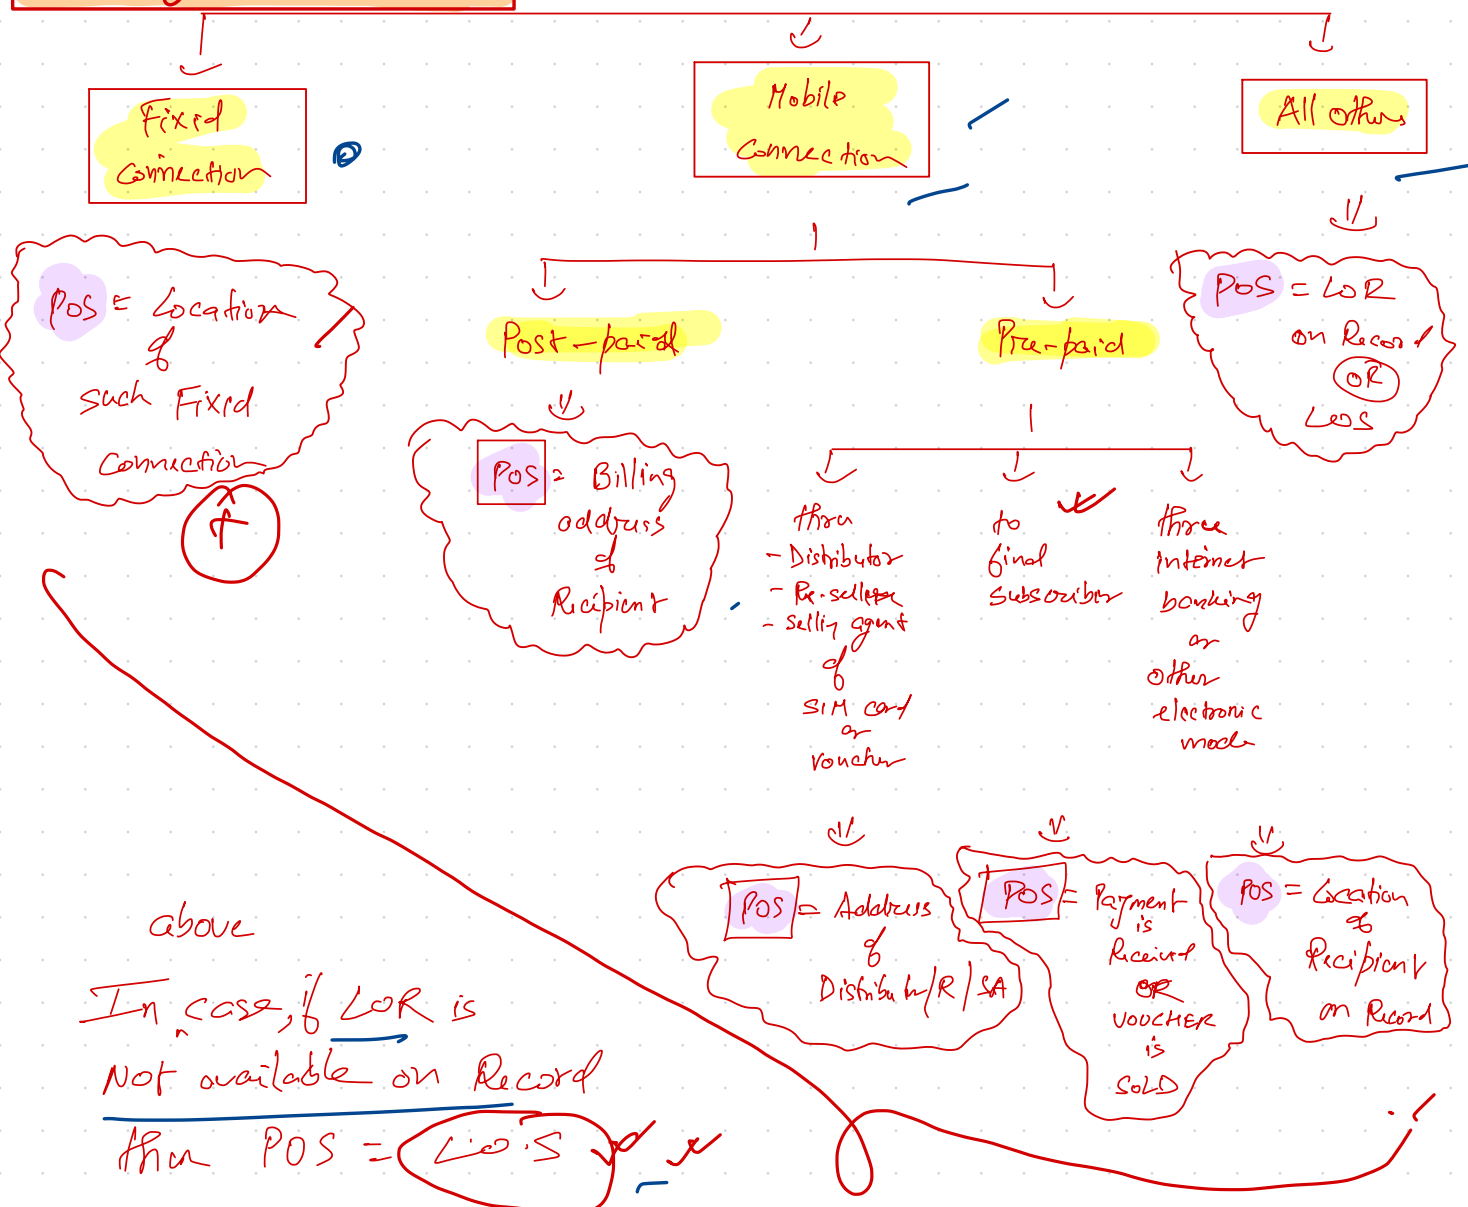 Fixed
Connection
Mobile
Connection
All others
POS = Location
of
such Fixed
Connection
Post-paid
Pre-paid
POS = LOR
on Record
OR
LOS
POS = Billing
address
of
Recipient
thru
- Distributor
- Re-seller
- Selling agent
of
SIM card
or
voucher
to
final
Subscriber
three
internet
banking
or
other
electronic
mode
POS = Address
of
Distributor/R/SA
POS = Payment
is
Received
OR
VOUCHER
is
SOLD
POS = Location
of
Recipient
on Record
above
In case, if LOR is
Not available on Record
then POS = L.O.S